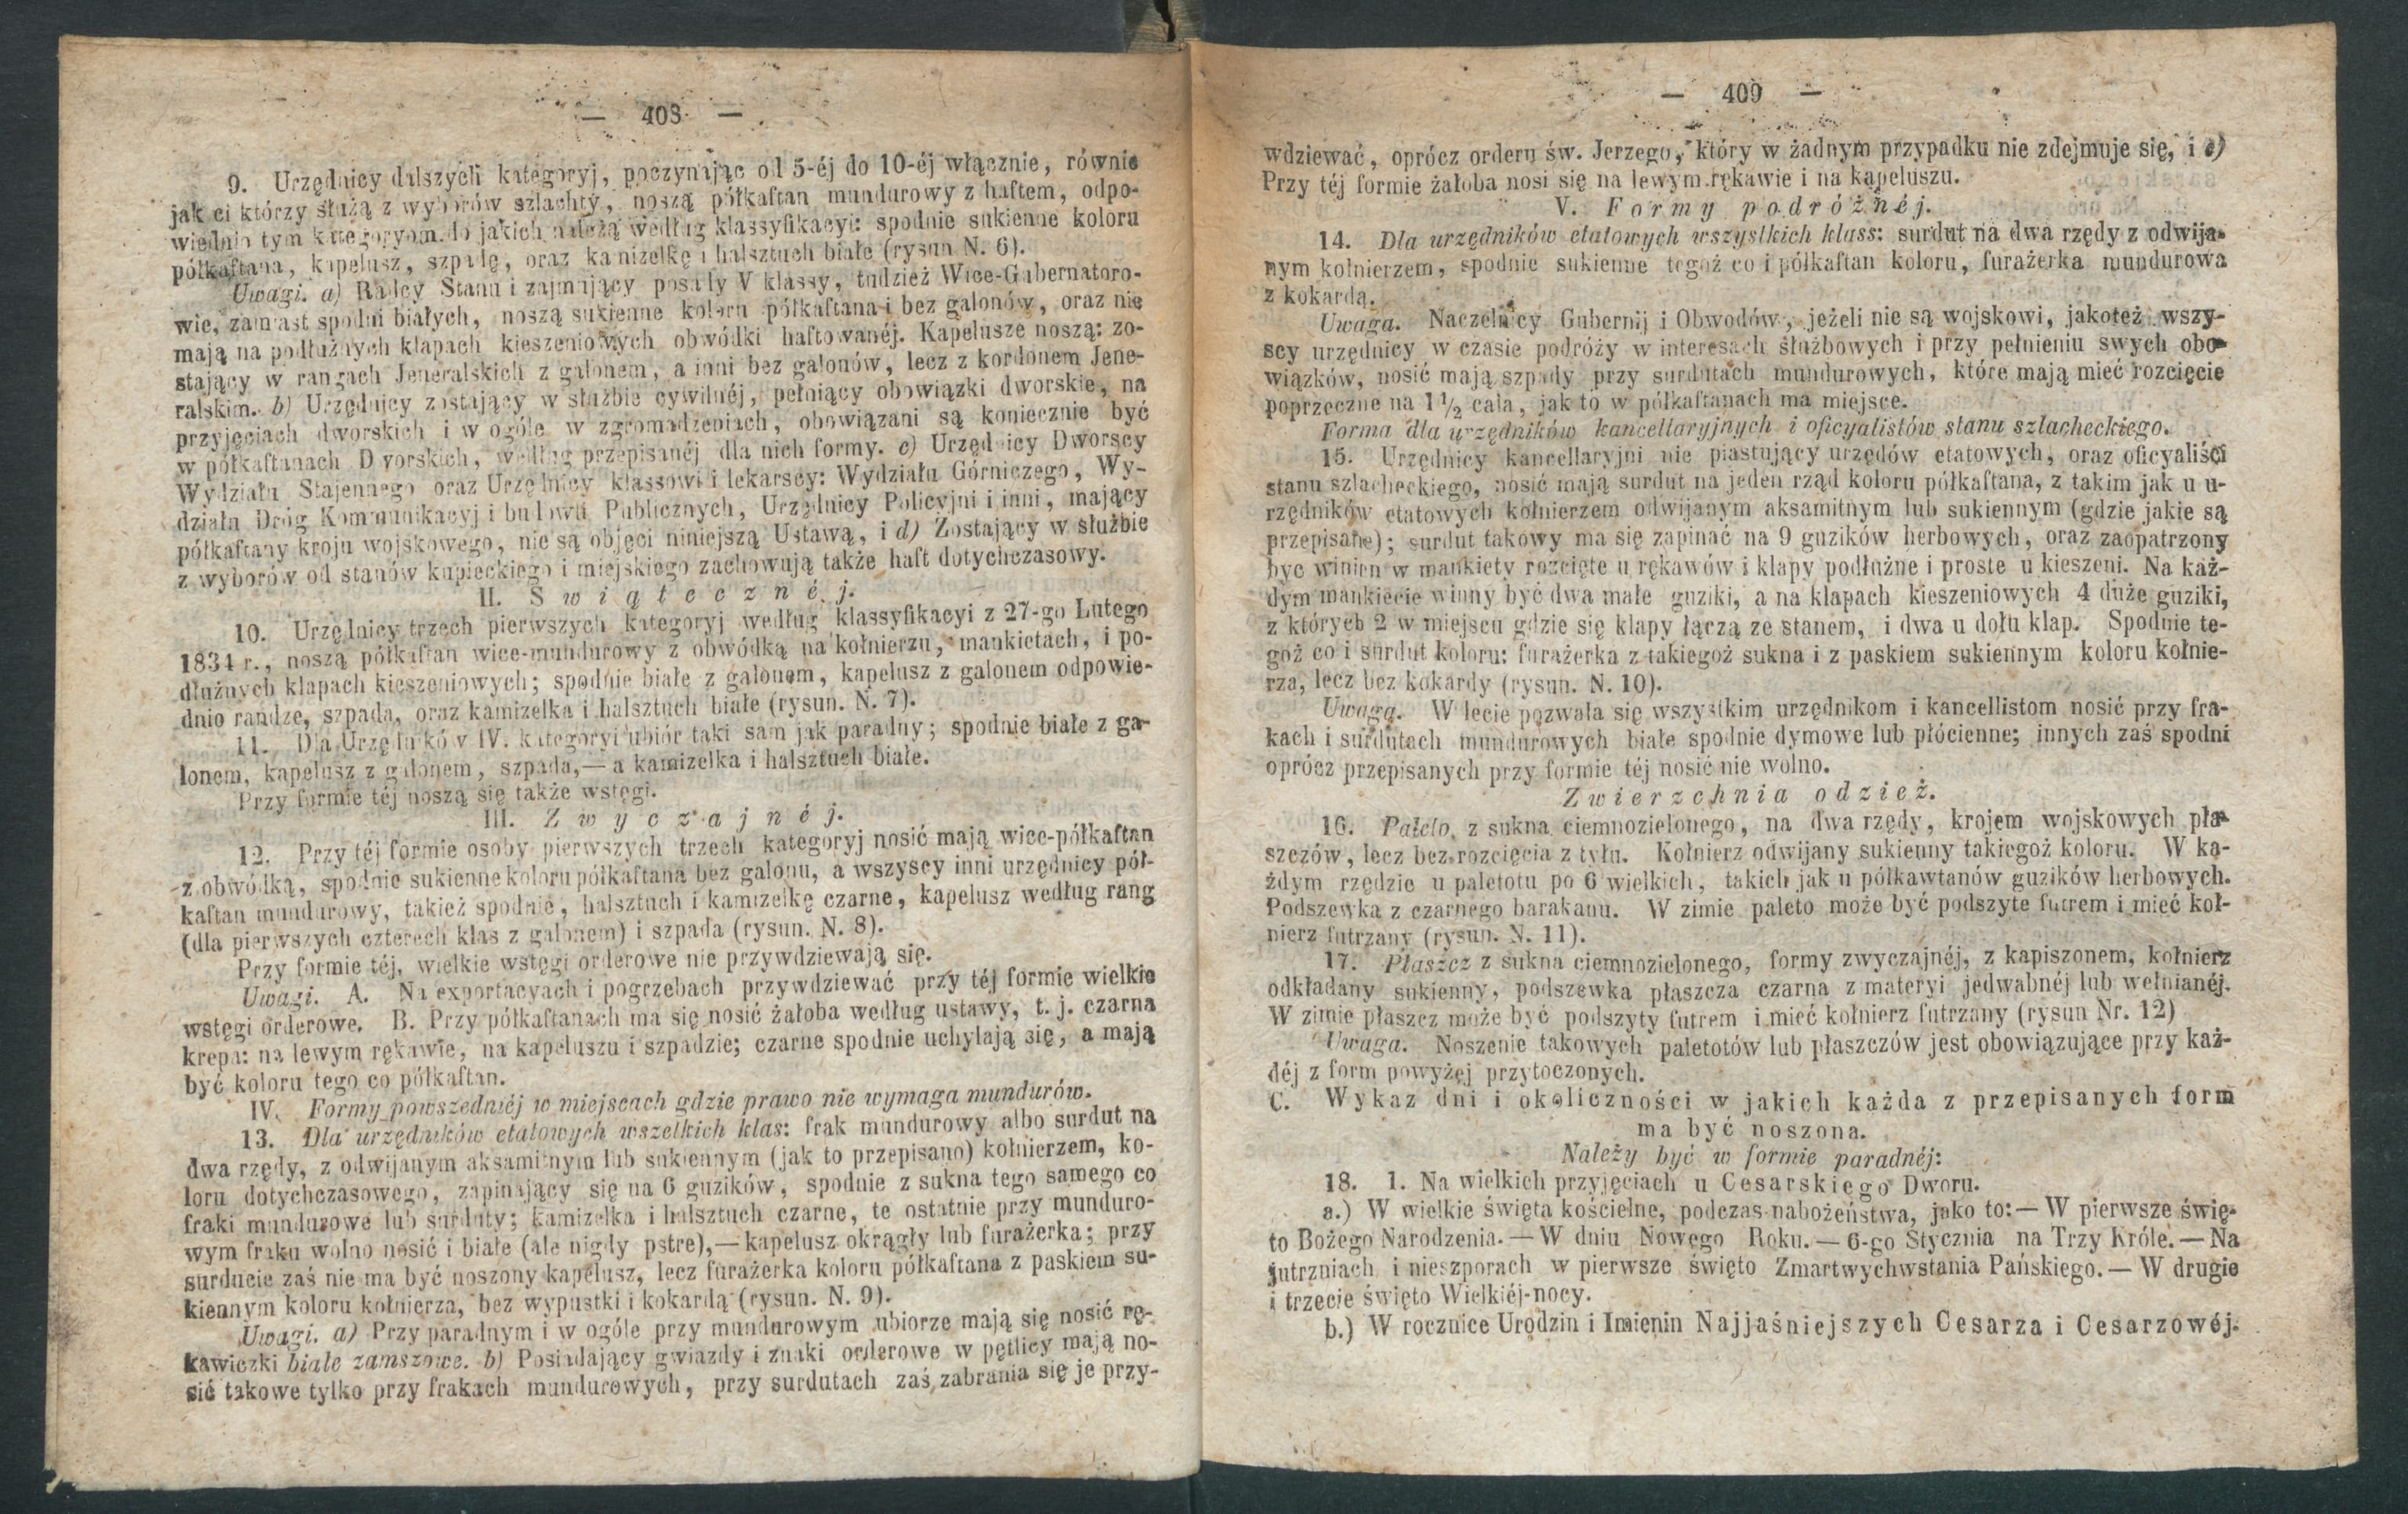 — 408 —
9. Urzędnicy dalszych kategoryj, poczynając od 5-éj do 10-éj włącznie, równie
jak ci którzy służą z wyborów szlachty, noszą półkaftan mundurowy z haftem, odpo-
wiednio tym kategoryom do jakich należą według klassyfikacyi: spodnie sukienne koloru
półkaftana, kapelusz, szpadę, oraz kamizelkę i halsztuch białe (rysun N. 6).
Uwagi. a) Radcy Stanu i zajmujący posady V klassy, tudzież Wice-Gubernatoro-
wie, zamiast spodni białych, noszą sukienne koloru półkaftana i bez galonów, oraz nie
mają na podłużnych klapach kieszeniowych obwódki haftowanéj. Kapelusze noszą: zo-
stający w rangach Jeneralskich z galonem, a inni bez galonów, lecz z kordonem Jene-
ralskim. b) Urzędnicy zostający w służbie cywilnéj, pełniący obowiązki dworskie, na
przyjęciach dworskich i w ogóle w zgromadzeniach, obowiązani są koniecznie być
w półkaftanach Dworskich, według przepisanéj dla nich formy. c) Urzędnicy Dworscy
Wydziału Stajennego oraz Urzędnicy klassowi i lekarscy: Wydziału Górniczego, Wy-
działu Dróg Kommunikacyj i budowli Publicznych, Urzędnicy Policyjni i inni, mający
półkaftany kroju wojskowego, nie są objęci niniejszą Ustawą, i d) Zostający w służbie
z wyborów od stanów kupieckiego i miejskiego zachowują także haft dotychczasowy.
II. Swiątecznéj.
10. Urzędnicy trzech pierwszych kategoryj według klassyfikacyi z 27-go Lutego
1834 r., noszą półkaftan wice-mundurowy z obwódką na kołnierzu, mankietach, i po-
dłużnych klapach kieszeniowych; spodnie białe z galonem, kapelusz z galonem odpowie-
dnio randze, szpada, oraz kamizelka i halsztuch białe (rysun. N. 7).
11. Dla Urzędników IV. kategoryi ubiór taki sam jak paradny; spodnie białe z ga-
lonem, kapelusz z galonem, szpada,— a kamizelka i halsztuch białe.
Przy formie téj noszą się także wstęgi.
III. Zwyczajnéj.
12. Przy téj formie osoby pierwszych trzech kategoryj nosić mają wice-półkaftan
z obwódką, spodnie sukienne koloru półkaftana bez galonu, a wszyscy inni urzędnicy pół-
kaftan mundurowy, takież spodnie, halsztuch i kamizelkę czarne, kapelusz według rang
(dla pierwszych czterech klas z galonem) i szpada (rysun. N. 8).
Przy formie téj, wielkie wstęgi orderowe nie przywdziewają się.
Uwagi. A. Na exportacyach i pogrzebach przywdziewać przy téj formie wielkie
wstęgi orderowe. B. Przy półkaftanach ma się nosić żałoba według ustawy, t. j. czarna
krepa: na lewym rękawie, na kapeluszu i szpadzie; czarne spodnie uchylają się, a mają
być koloru tego co półkaftan.
IV. Formy powszedniéj w miejscach gdzie prawo nie wymaga mundurów.
13. Dla urzędników etatowych wszelkich klas: frak mundurowy albo surdut na
dwa rzędy, z odwijanym aksamitnym lub sukiennym (jak to przepisano) kołnierzem, ko-
loru dotychczasowego, zapinający się na 6 guzików, spodnie z sukna tego samego co
fraki mundurowe lub surduty; kamizelka i halsztuch czarne, te ostatnie przy munduro-
wym fraku wolno nosić i białe (ale nigdy pstre),— kapelusz okrągły lub furażerka; przy
surducie zaś nie ma być noszony kapelusz, lecz furażerka koloru półkaftana z paskiem su-
kiennym koloru kołnierza, bez wypustki i kokardą (rysun. N. 9).
Uwagi. a) Przy paradnym i w ogóle przy mundurowym ubiorze mają się nosić rę-
kawiczki białe zamszowe. b) Posiadający gwiazdy i znaki orderowe w pętlicy mają no-
sić takowe tylko przy frakach mundurowych, przy surdutach zaś zabrania się je przy-
— 409 —
wdziewać, oprócz orderu św. Jerzego, który w żadnym przypadku nie zdejmuje się, i c)
Przy téj formie żałoba nosi się na lewym rękawie i na kapeluszu.
V. Formy podróżnéj.
14. Dla urzędników etatowych wszystkich klass: surdut na dwa rzędy z odwija-
nym kołnierzem, spodnie sukienne tegoż co i półkaftan koloru, furażerka mundurowa
z kokardą.
Uwaga. Naczelnicy Gubernij i Obwodów, jeżeli nie są wojskowi, jakoteż wszy-
scy urzędnicy w czasie podróży w interesach służbowych i przy pełnieniu swych obo-
wiązków, nosić mają szpady przy surdutach mundurowych, które mają mieć rozcięcie
poprzeczne na 1 1/2 cala, jak to w półkaftanach ma miejsce.
Forma dla urzędników kancellaryjnych i oficyalistów stanu szlacheckiego.
15. Urzędnicy kancellaryjni nie piastujący urzędów etatowych, oraz oficyaliści
stanu szlacheckiego, nosić mają surdut na jeden rząd koloru półkaftana, z takim jak u u-
rzędników etatowych kołnierzem odwijanym aksamitnym lub sukiennym (gdzie jakie są
przepisane); surdut takowy ma się zapinać na 9 guzików herbowych, oraz zaopatrzony
być winien w mankiety rozcięte u rękawów i klapy podłużne i proste u kieszeni. Na każ-
dym mankiecie winny być dwa małe guziki, a na klapach kieszeniowych 4 duże guziki,
z których 2 w miejscu gdzie się klapy łączą ze stanem, i dwa u dołu klap. Spodnie te-
goż co i surdut koloru: furażerka z takiegoż sukna i z paskiem sukiennym koloru kołnie-
rza, lecz bez kokardy (rysun. N. 10).
Uwaga. W lecie pozwala się wszystkim urzędnikom i kancellistom nosić przy fra-
kach i surdutach mundurowych białe spodnie dymowe lub płócienne; innych zaś spodni
oprócz przepisanych przy formie téj nosić nie wolno.
Zwierzchnia odzież.
16. Paleto z sukna ciemnozielonego, na dwa rzędy, krojem wojskowych pła-
szczów, lecz bez rozcięcia z tyłu. Kołnierz odwijany sukienny takiegoż koloru. W ka-
żdym rzędzie u paletotu po 6 wielkich, takich jak u półkawtanów guzików herbowych.
Podszewka z czarnego barakanu. W zimie paleto może być podszyte futrem i mieć koł-
nierz futrzany (rysun. N. 11).
17. Płaszcz z sukna ciemnozielonego, formy zwyczajnéj, z kapiszonem, kołnierz
odkładany sukienny, podszewka płaszcza czarna z materyi jedwabnéj lub wełnianéj.
W zimie płaszcz może być podszyty futrem i mieć kołnierz futrzany (rysun Nr. 12)
Uwaga. Noszenie takowych paletotów lub płaszczów jest obowiązujące przy każ-
déj z form powyżej przytoczonych.
C. Wykaz dni i okoliczności w jakich każda z przepisanych form
ma być noszona.
Należy być w formie paradnéj:
18. 1. Na wielkich przyjęciach u Cesarskiego Dworu.
a.) W wielkie święta kościelne, podczas nabożeństwa, jako to:— W pierwsze świę-
to Bożego Narodzenia. — W dniu Nowego Roku. — 6-go Stycznia na Trzy Króle. — Na
jutrzniach i nieszporach w pierwsze święto Zmartwychwstania Pańskiego. — W drugie
i trzecie święto Wielkiéj-nocy.
b.) W rocznice Urodzin i Imienin Najjaśniejszych Cesarza i Cesarzowéj.